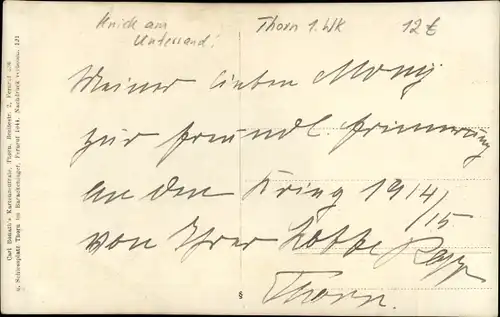 Knick am
Unterrand!
Thorn 1. WK
12€
Meiner lieben Mony
zur freundl. Erinnerung
an den Krieg 1914/15
von Ihrer Lotte Rapp
Thorn.
Carl Bonath's Kartenzentrale, Thorn, Breitestr. 2, Fernruf 536
u. Schiessplatz Thorn im Barackenlager, Fernruf 1044. Nachdruck verboten. 121